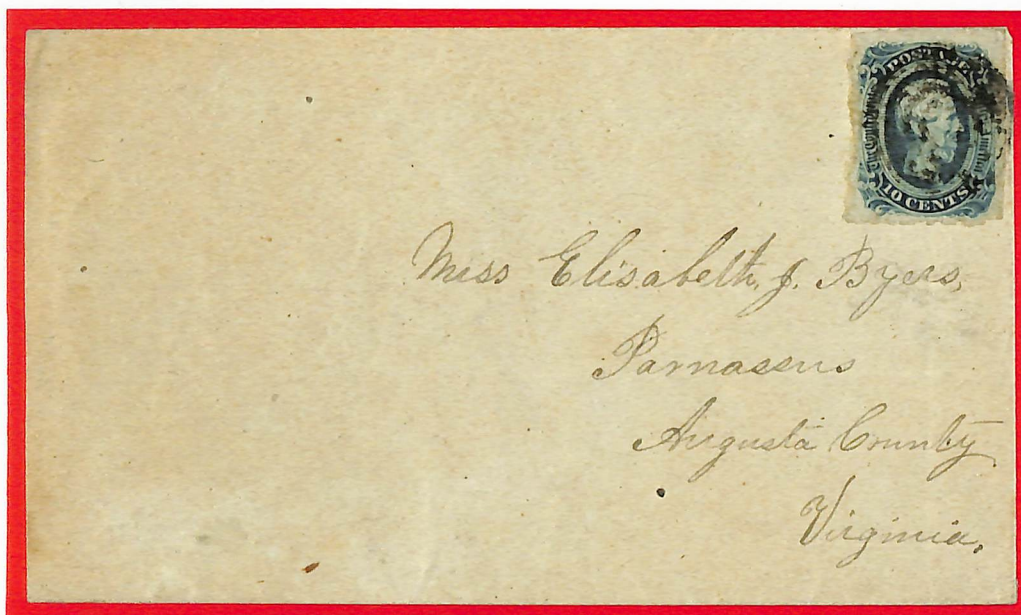 POSTAGE
The Confederate
10 CENTS
Miss Elisabeth, J. Byers,
Parnassus
Augusta County
Virginia,